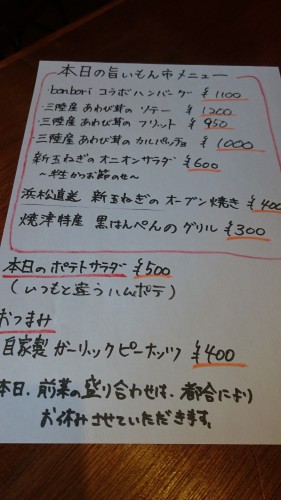 本日の旨いもん市メニュー
・bonbori コラボハンバーグ ¥1100
・三陸産 あわび茸の ソテー ¥1200
・三陸産 あわび茸の フリット ¥950
三陸産 あわび茸の カルパッチョ ¥1000
新玉ねぎの オニオンサラダ ¥600
〜半生かつお節のせ〜
浜松直送 新玉ねぎの オーブン焼き ¥400
焼津特産 黒はんぺんの グリル ¥300
本日の ポテトサラダ ¥500
(いつもと違うハムポテ)
おつまみ
自家製 ガーリックピーナッツ ¥400
本日、前菜の盛り合わせは、都合により
お休みさせていただきます。